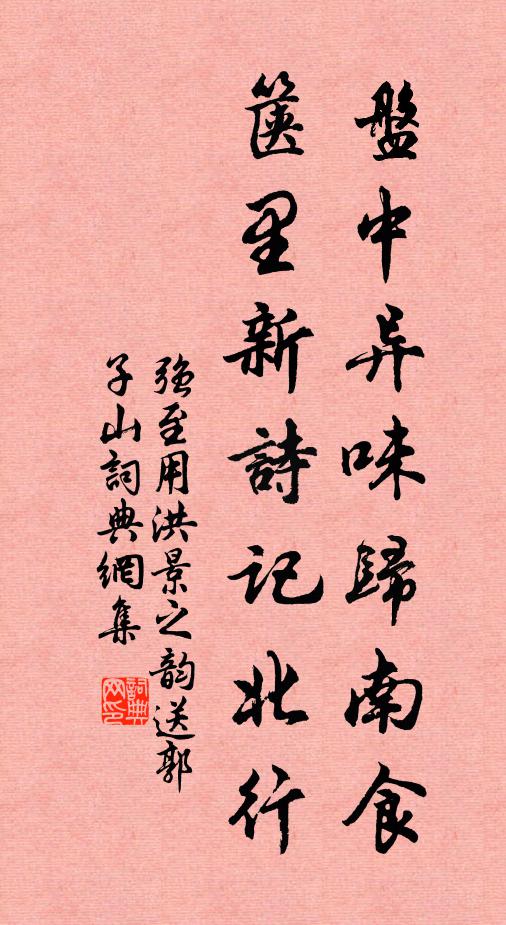 盤中异味歸南食
篋里新詩記北行
強至用洪景之韵送郭
子山詞典網集
詞典
网印